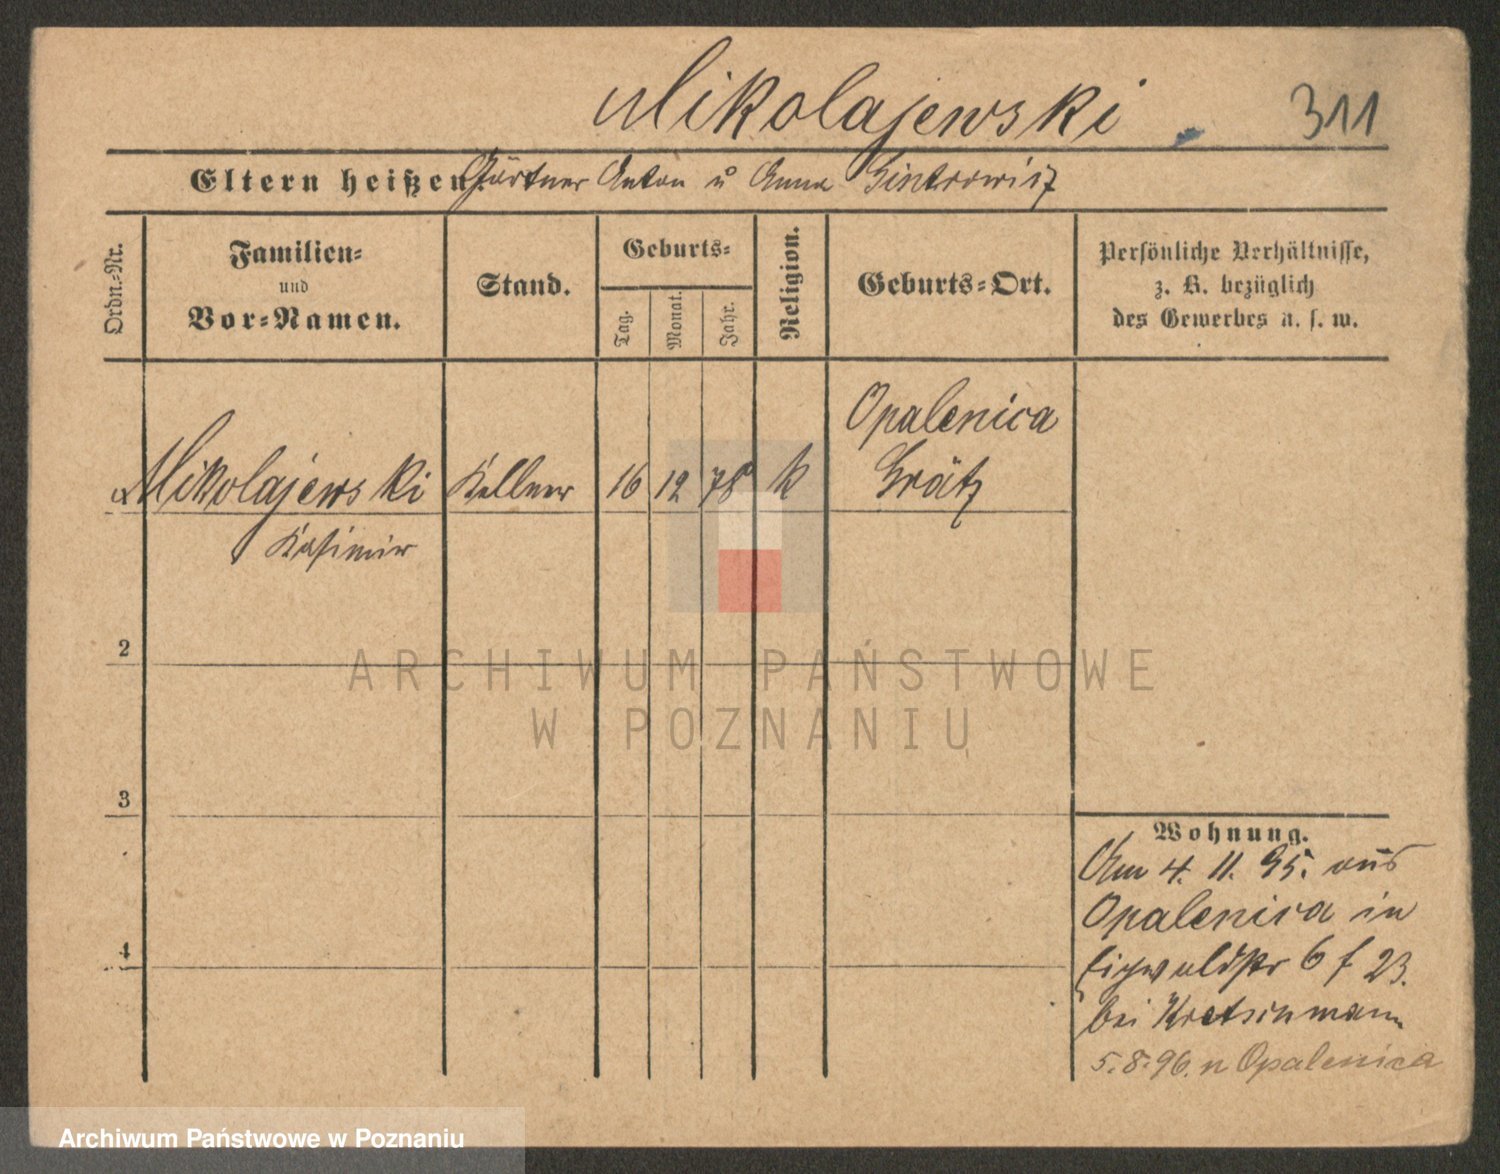 Mikolajewski 311
Eltern heißen: Gärtner Anton u Anna
Ordn.-Nr.
Familien-
und
Vor-Namen.
Stand.
Geburts-
Tag.
Monat.
Jahr.
Religion.
Geburts-Ort.
Persönliche Verhältnisse,
z. B. bezüglich
des Gewerbes u. s. w.
Mikolajewski Kellner 16 12 78 k Opalenica
Grätz
Kasimir
2
3
4
Wohnung.
Am 4. 11. 95. aus
Opalenica in
6 f 23.
bei
5.8.96. n Opalenica
ARCHIWUM PAŃSTWOWE
W POZNANIU
Archiwum Państwowe w Poznaniu